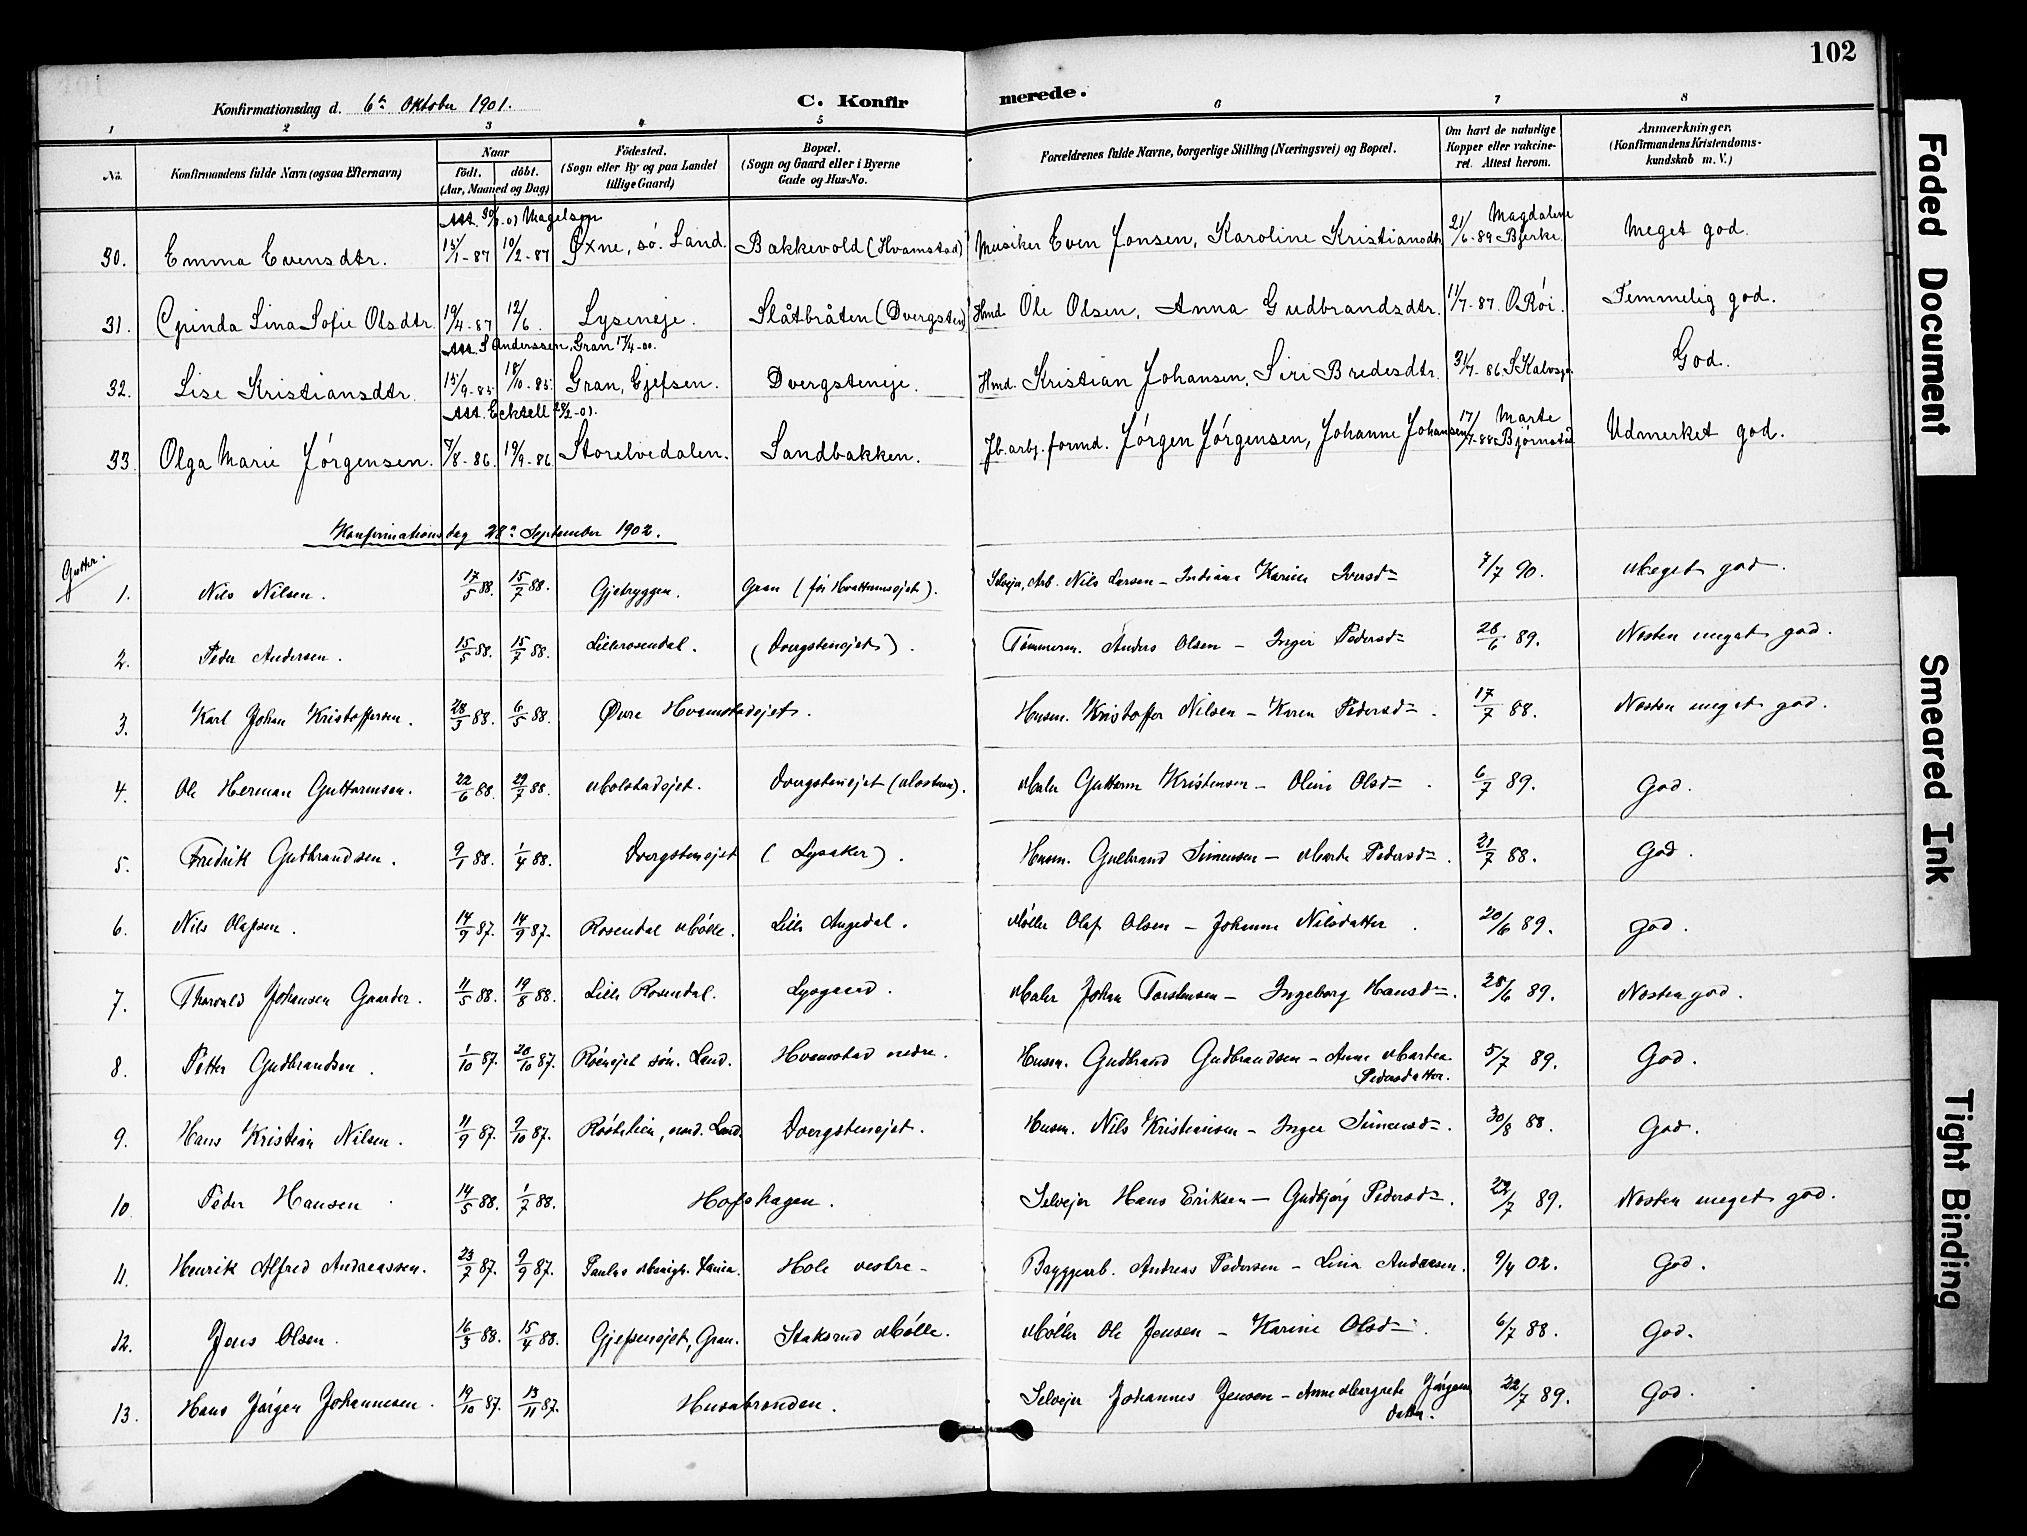 102
Konfirmationsdag d. 6te Oktober 1901. C. Konfirmerede.
1 2 3 4 5 6 7 8
No. Konfirmandens fulde Navn (ogsaa Efternavn) Naar født. døbt. (Aar, Maaned og Dag) Fødested. (Sogn eller By og paa Landet tillige Gaard) Bopæl. (Sogn og Gaard eller i Byerne Gade og Hus-No. Forældrenes fulde Navne, borgerlige Stilling (Næringsvei) og Bopæl. Om havt de naturlige Kopper eller vakcineret. Attest herom. Anmærkninger. (Konfirmandens Kristendomskundskab m. V.)
Att. 30/9.01 Magelssen
30. Emma Evensdtr. 15/1-87 10/2-87 Øxne, sø. Land. Bakkevold (Hvamstad) Musiker Even Jonsen, Karoline Kristiansdtr. 21/6-89 Magdalene Bjerke. Meget god.
31. Lina Sofie Olsdtr. 19/4-87 12/6. Lyseneje. Slåtbråten (Dvergsten) Hmd Ole Olsen, Anna Gudbrandsdtr. 11/7-87. O Røi. Temmelig god.
Att. S Anderssen, Gran 17/4-00.
32. Lise Kristiansdtr. 15/9-85 18/10-85. Gran, Gjefsen. Dvergsteneje. Hmd. Kristian Johansen, Siri Bredesdtr. 31/7-86 S Kalvsj. God.
Att. Ecktell 28/2-01.
33. Olga Marie Jørgensen. 7/8-86. 19/9-86 Storelvedalen. Sandbakken. Jb. arbj. formd. Jørgen Jørgensen, Johanne Johansen 17/7-88 Marte Bjørnstad Udmerket god.
Konfirmationsdag 28de September 1902.
Gutter.
1. Nils Nilsen. 17/5 88. 15/7 88. Gjetryggen. Gran (før Hvattumsejet). Selvejer, Arb. Nils Larsen - Indiana Karine Iversd= 7/7 90. Meget god.
2. Peder Andersen. 15/5 88. 15/7 88. Lillerosendal. (Dvergstenejet). Tømmerm. Anders Olsen - Inger Pedersd= 28/6 89. Næsten meget god.
3. Karl Johan Kristoffersen. 28/3 88. 6/5 88. Øvre Hvamstadejet. Husm. Kristoffer Nilsen - Karen Pedersd=. 17/7 88. Næsten meget god.
4. Ole Herman Guttormsen. 22/6 88. 29/7 88. Molstadejet. Dvergstenejet (Mostuen). Maler Guttorm Kristensen - Oline Olsd=. 6/7 89. God.
5. Fredrik Gudbrandsen. 9/1 88. 1/4 88. Dvergstenejet (Lysaker). Husm. Gulbrand Simensen - Marte Pedersd=. 21/7 88. God.
6. Nils Olafsen. 14/9 87. 14/9 87. Rosendal Mølle. Lille Augedal. Møller Olaf Olsen - Johanne Nilsdatter. 20/6 89. God.
7. Thorvald Johansen Gaarder. 11/5 88. 19/8 88. Lille Rosendal. Lysgaard. Maler Johan Torstensen - Ingeborg Hansd=. 28/6 89. Næsten god.
8. Petter Gudbrandsen. 1/10 87. 28/10 87. Røensjet søn. Land. Hvamstad nedre. Husm. Gudbrand Gudbrandsen - Anne Martea Pedersdatter. 5/7 89. God.
9. Hans Kristian Nilsen. 11/9 87. 9/10 87. nord. Land. Dvergstenejet. Husm. Nils Kristiansen - Inger Simensd=. 30/8 88. God.
10. Peder Hansen. 14/5 88. 1/7 88. Hofshagen. Selvejer Hans Eriksen - Gudbjørg Pedersd=. 22/7 89. Næsten meget god.
11. Henrik Alfred Andreassen. 23/7 87. 9/9 87. Paulus Menigh. Hole vestre - Bryggearb. Andreas Pedersen - Lina Andersen. 9/4 02. God.
12. Jens Olsen. 16/3 88. 15/4 88. Gjefsenejet, Gran. Staksrud Mølle. Møller Ole Jensen - Karine Olsd=. 6/7 88. God.
13. Hans Jørgen Johannesen. 19/10 87. 13/11 87. Husebranden. Selvejer Johannes Jensen - Anne Margrete Jørgensdatter. 22/7 89. God.
Faded Document
Smeared Ink
Tight Binding